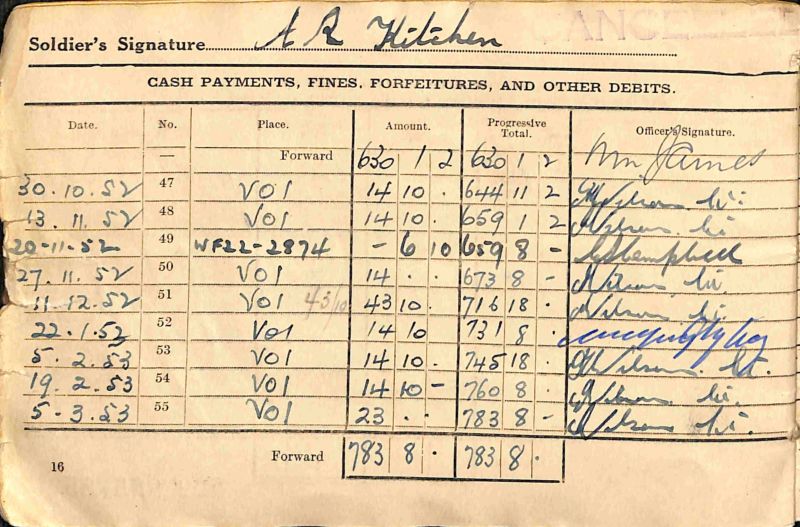 CANCELLED
Soldier's Signature A R Kitchen
CASH PAYMENTS, FINES, FORFEITURES, AND OTHER DEBITS.
Date. No. Place. Amount. Progressive Total. Officer's Signature.
— Forward 630 1 2 630 1 2 Wm James
30.10.52 47 VO1 14 10 . 644 11 2 Wilson Lt:
13.11.52 48 VO1 14 10 . 659 1 2 Wilson Lt
20-11-52 49 WF22-2874 - 6 10 659 8 - Campbell
27.11.52 50 VO1 14 . . 673 8 - Wilson Lt
11.12.52 51 VO1 43/10 43 10 . 716 18 . Wilson Lt.
22.1.53 52 VO1 14 10 731 8 .
5.2.53 53 VO1 14 10 . 745 18 . Wilson Lt.
19.2.53 54 VO1 14 10 - 760 8 . Wilson Lt:
5.3.53 55 VO1 23 . . 783 8 - Wilson Lt:
16 Forward 783 8 . 783 8 .